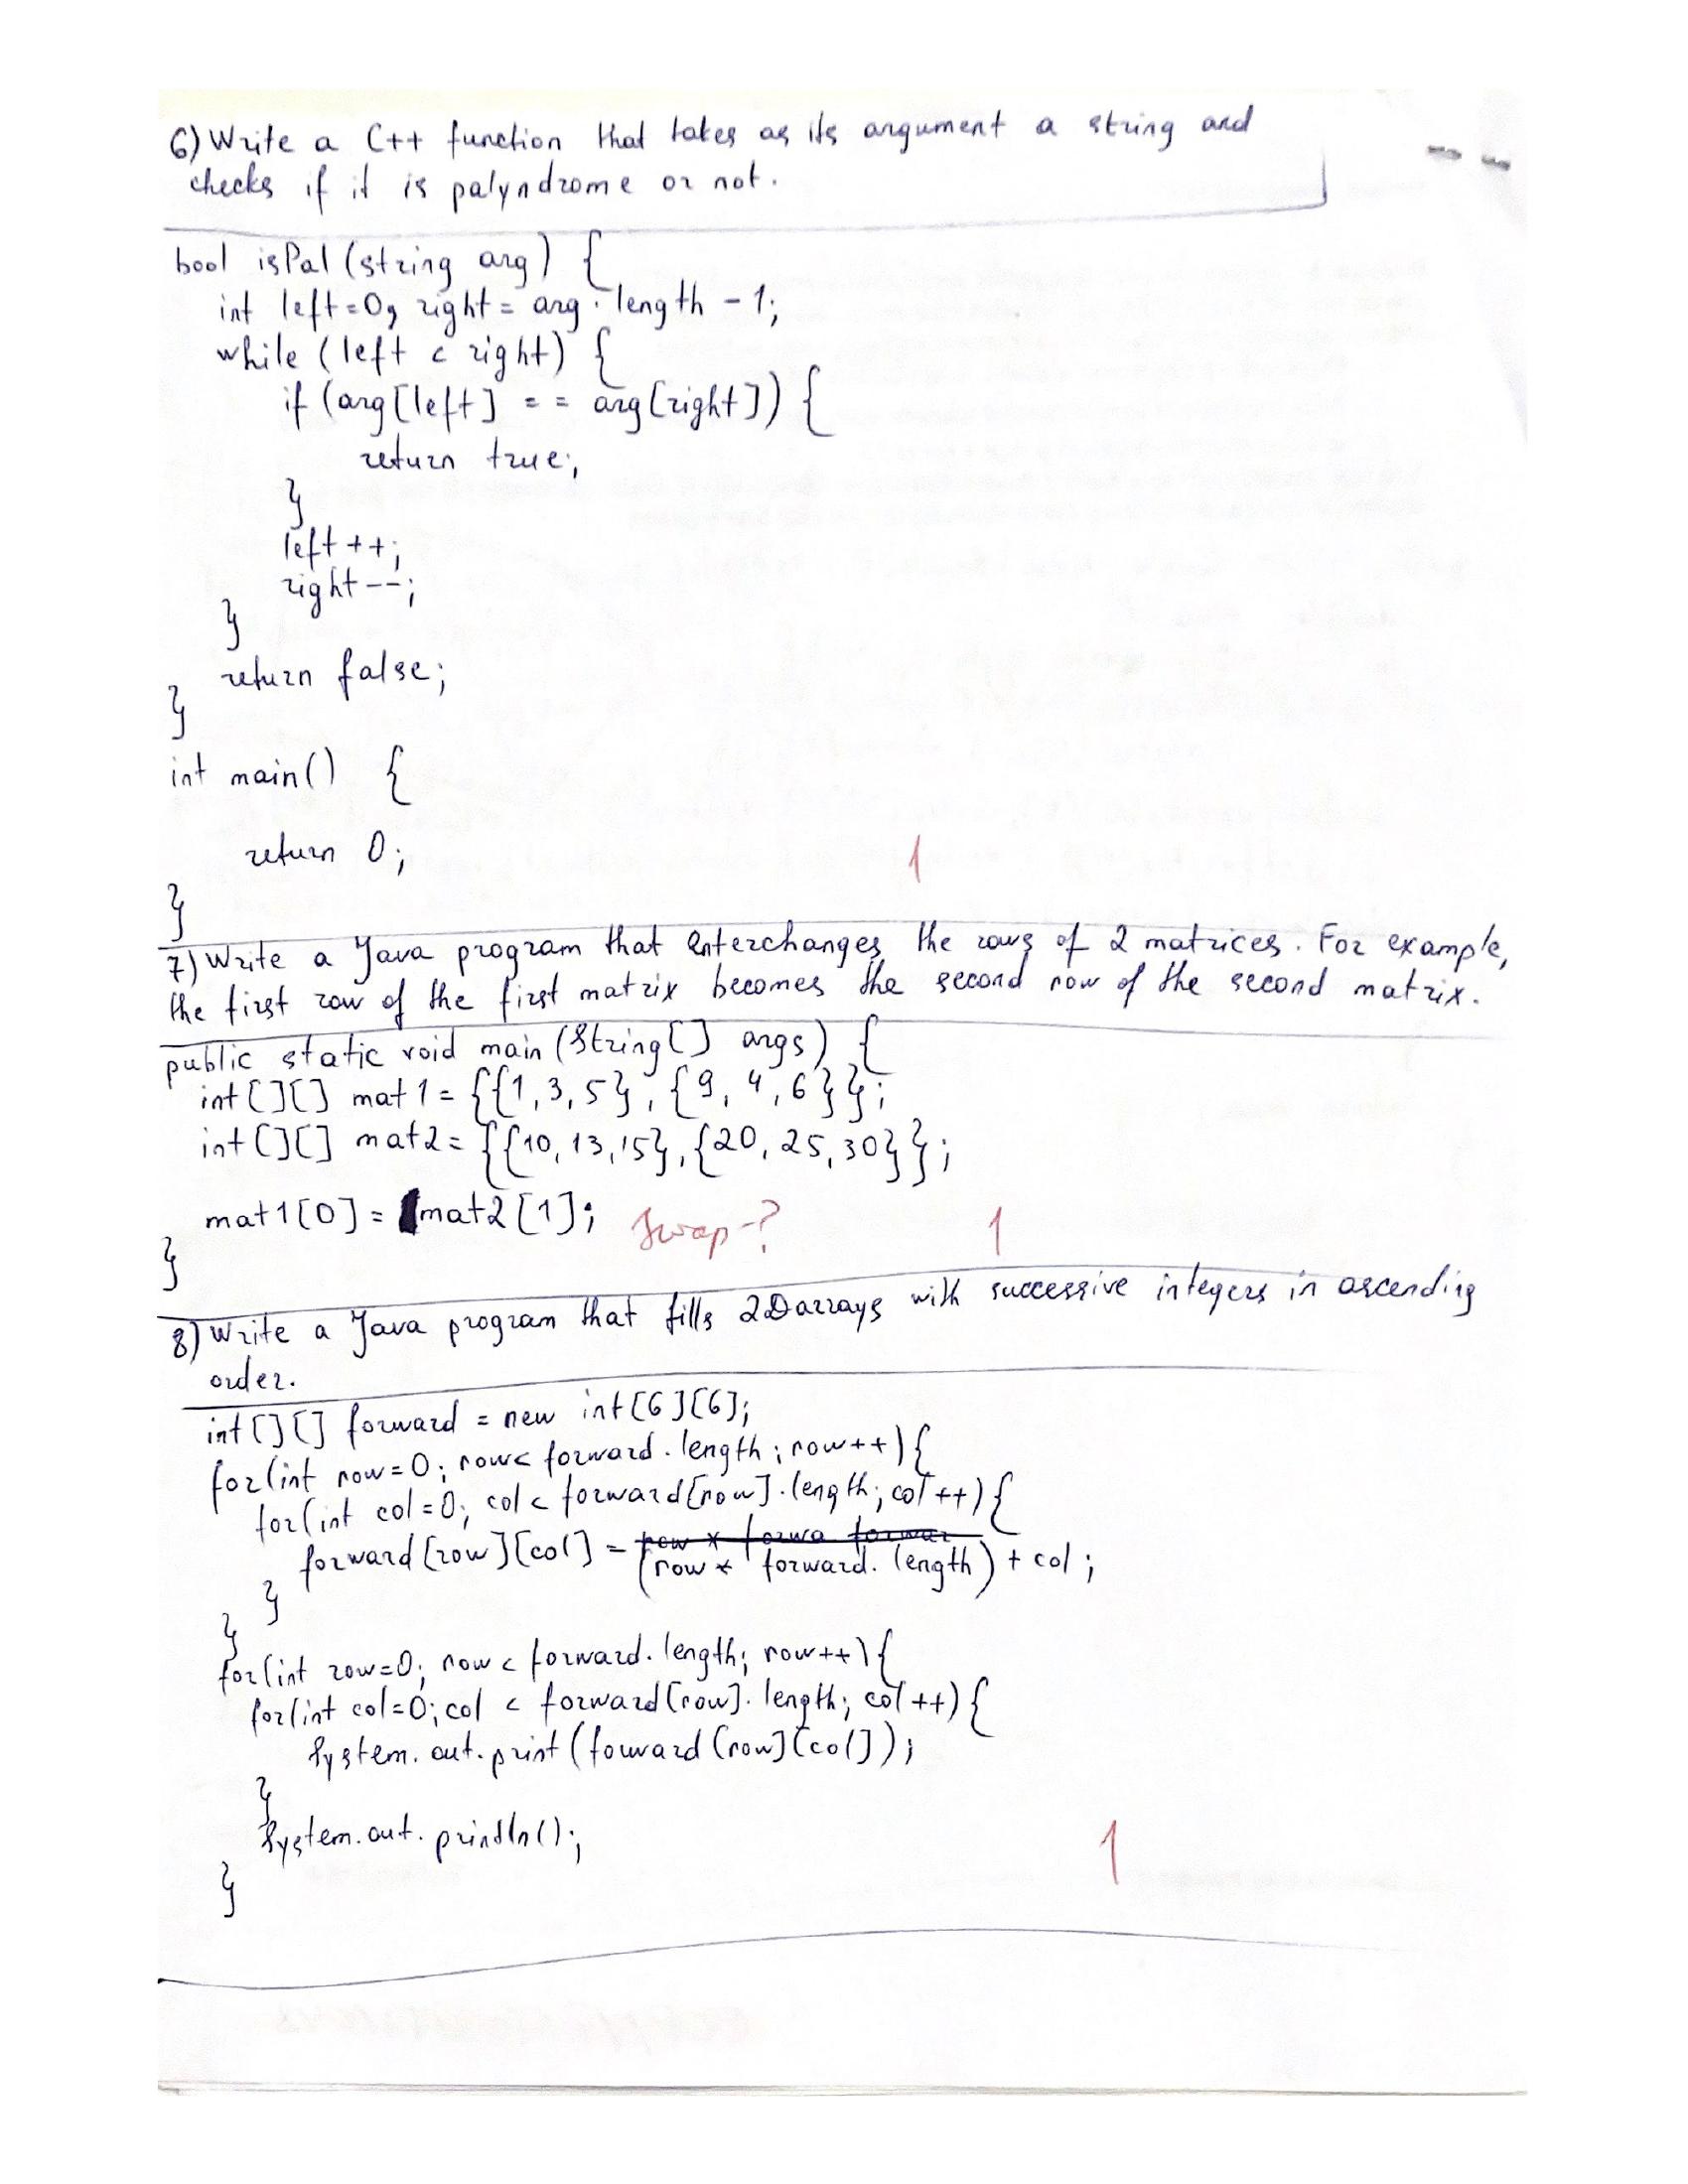 6) Write a C++ function that takes as its argument a string and
checks if it is palyndrome or not.
bool isPal (string arg) {
int left=0, right = arg.length - 1;
while (left < right) {
if (arg[left] == arg[right]) {
return true;
}
left++;
right--;
}
return false;
}
int main() {
return 0;
1
}
7) Write a Java program that interchanges the rows of 2 matrices. For example,
the first row of the first matrix becomes the second row of the second matrix.
public static void main (String[] args) {
int[][] mat1 = {{1, 3, 5}, {9, 4, 6}};
int[][] mat2 = {{10, 13, 15}, {20, 25, 30}};
mat1[0] = mat2[1]; Swap-? 1
}
8) Write a Java program that fills 2D arrays with successive integers in ascending
order.
int[][] forward = new int[6][6];
for(int row=0; row< forward.length; row++){
for(int col=0; col< forward[row].length; col++){
forward[row][col] = (row * forward.length) + col;
}
}
for(int row=0; row < forward.length; row++){
for(int col=0; col < forward[row].length; col++){
System.out.print(forward[row][col]);
}
System.out.println();
1
}